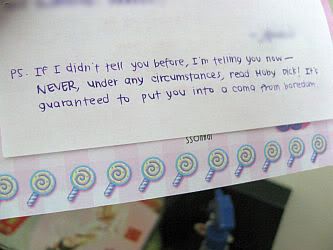 PS. If I didn't tell you before, I'm telling you now—
NEVER, under any circumstances, read Moby Dick! It's
guaranteed to put you into a coma from boredom.